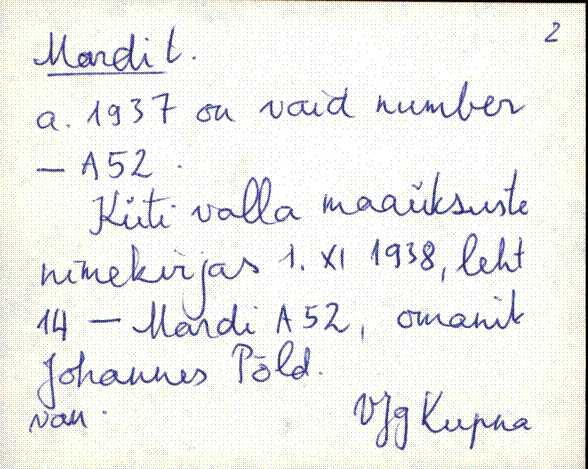 2
Mardi t.
a. 1937 on vaid number
— A52.
Küti valla maaüksuste
nimekirjas 1. XI 1938, leht
14 — Mardi A52, omanik
Johannes Põld.
van. VJg Kupna